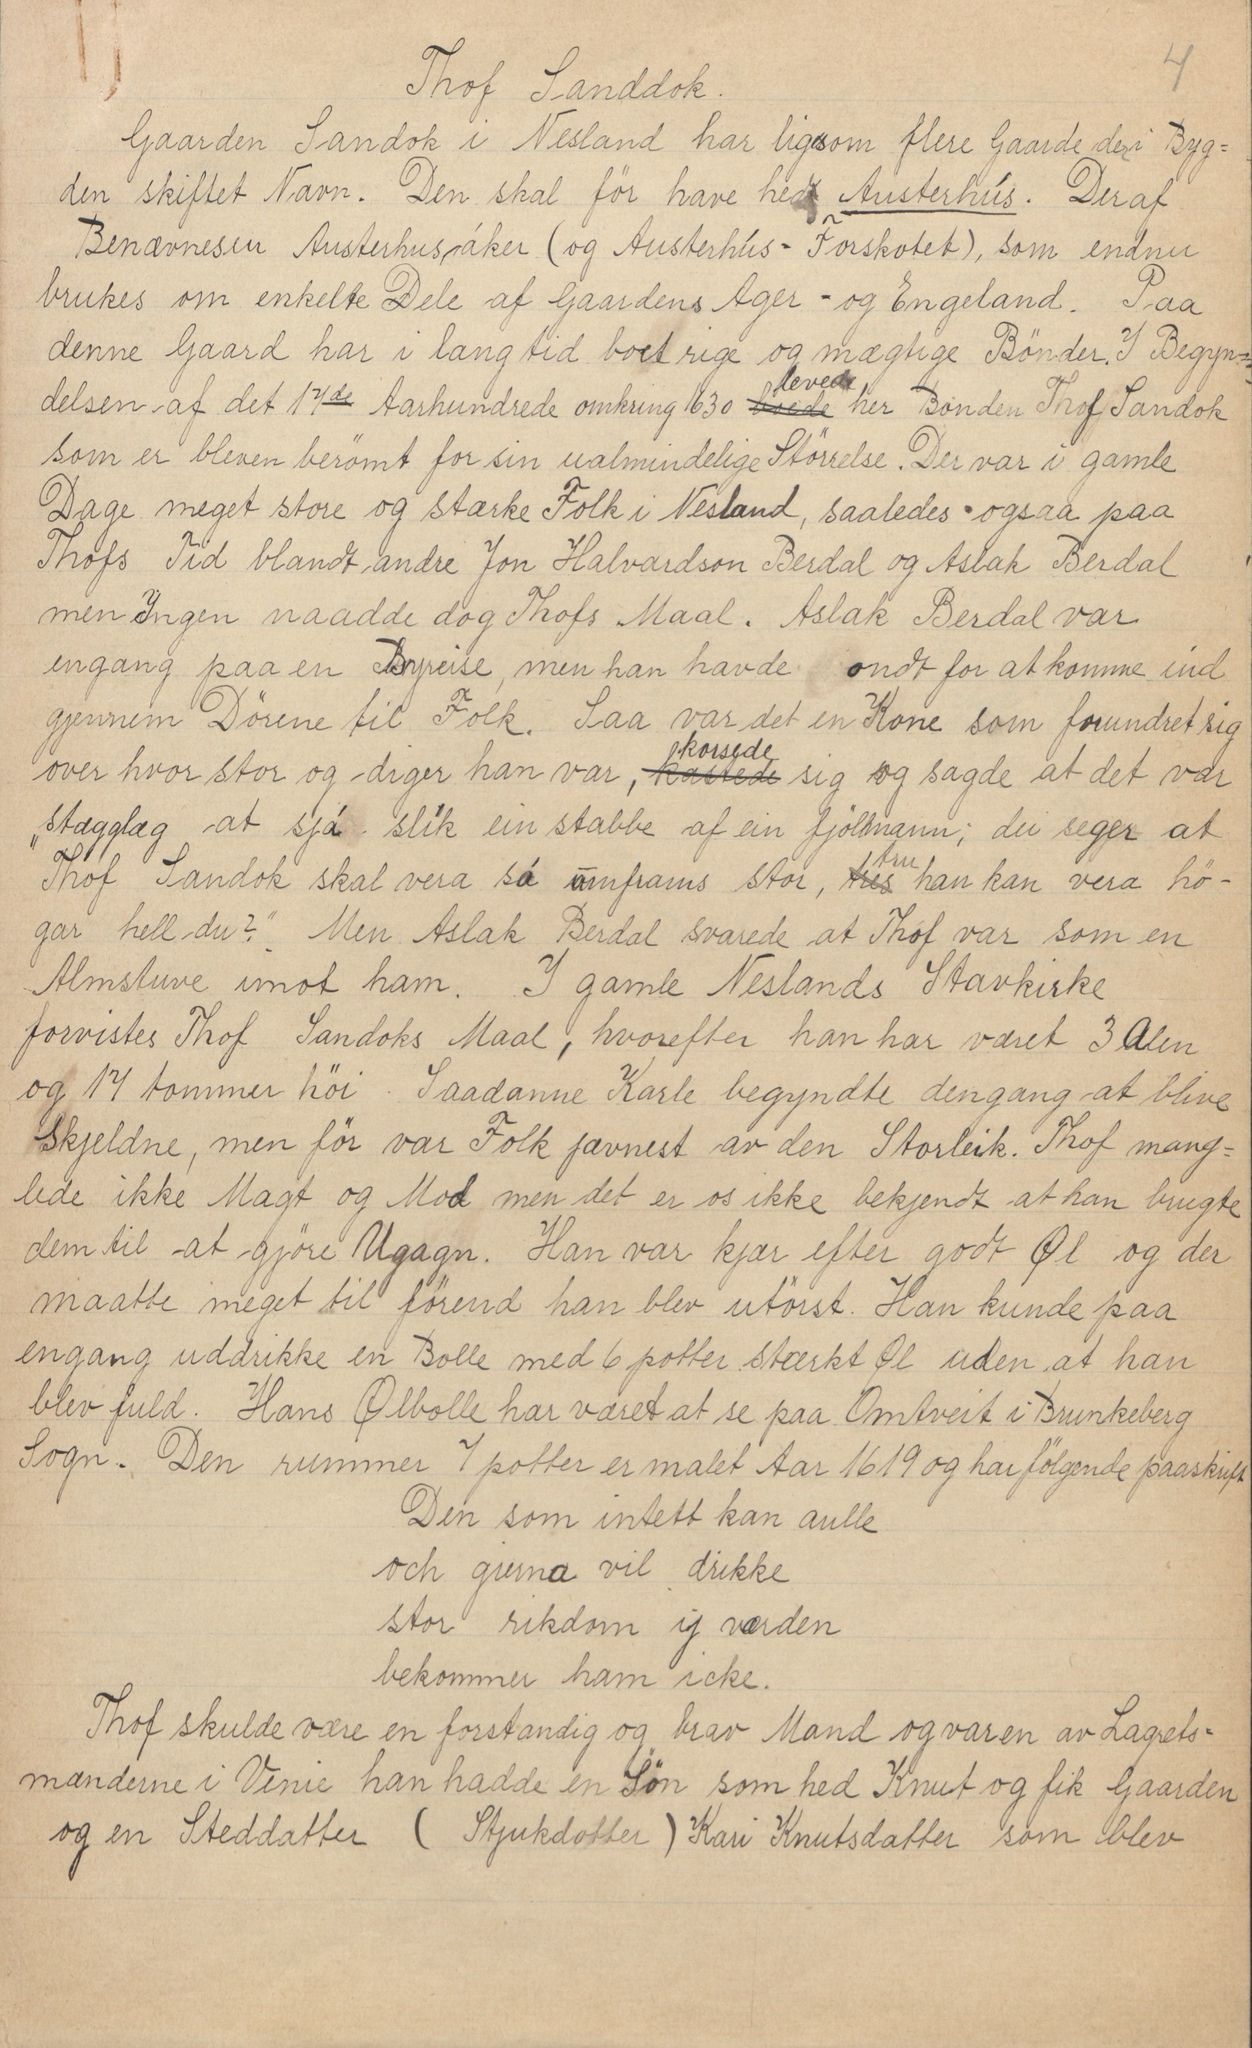 4
Thof Sanddok.
Gaarden Sandok i Nesland har ligesom flere Gaarde der i Byg=
den skiftet Navn. Den skal för have hedt Austerhús. Deraf
Benævnesen Austerhusåker (og Austerhús-Forskotet), som endnu
brukes om enkelte Dele af Gaardens Ager- og Engeland. Paa
denne Gaard har i lang tid boet rige og mægtige Bönder. I Begyn=
delsen af det 17de Aarhundrede omkring 1630 levede her Bonden Thof Sandok
som er bleven berömt for sin ualmindelige Störrelse. Der var i gamle
Dage meget store og stærke Folk i Nesland, saaledes ogsaa paa
Thofs Tid blandt andre Jon Halvardson Berdal og Aslak Berdal
men Ingen naadde dog Thofs Maal. Aslak Berdal var
engang paa en Byreise, men han havde ondt for at komme ind
gjennem Dörene til Folk. Saa var det en Kone som forundret sig
over hvor stor og diger han var, korsede sig og sagde at det var
"stægglæg at sjá slik ein stabbe af ein fjöllmann; dei seger at
Thof Sandok skal vera så umframs stor, tru han kan vera hö-
gar hell du?" Men Aslak Berdal svarede at Thof var som en
Almstuve imot ham. I gamle Neslands Stavkirke
forvistes Thof Sandoks Maal, hvorefter han har været 3 Alen
og 17 tommer höi. Saadanne Karle begyndte dengang at blive
skjeldne, men för var Folk jævnest av den Storleik. Thof mang=
lede ikke Magt og Mod men det er os ikke bekjendt at han brugte
dem til at gjöre Ugagn. Han var kjær efter godt Øl og der
maatte meget til förend han blev utörst. Han kunde paa
engang uddrikke en Bolle med 6 potter stærkt Øl uden at han
blev fuld. Hans Ølbolle har været at se paa Omtveit i Brunkeberg
Sogn. Den rummer 7 potter er malet Aar 1619 og har fölgende paaskrift
Den som intett kan aulle
och gierna vil drikke
stor rikdom ij værden
bekommer ham icke.
Thof skulde være en forstandig og brav Mand og var en av Lagrets=
mænderne i Vinie han hadde en Sön som hed Knut og fik Gaarden
og en Steddatter (Stjukdotter) Kari Knutsdatter som blev